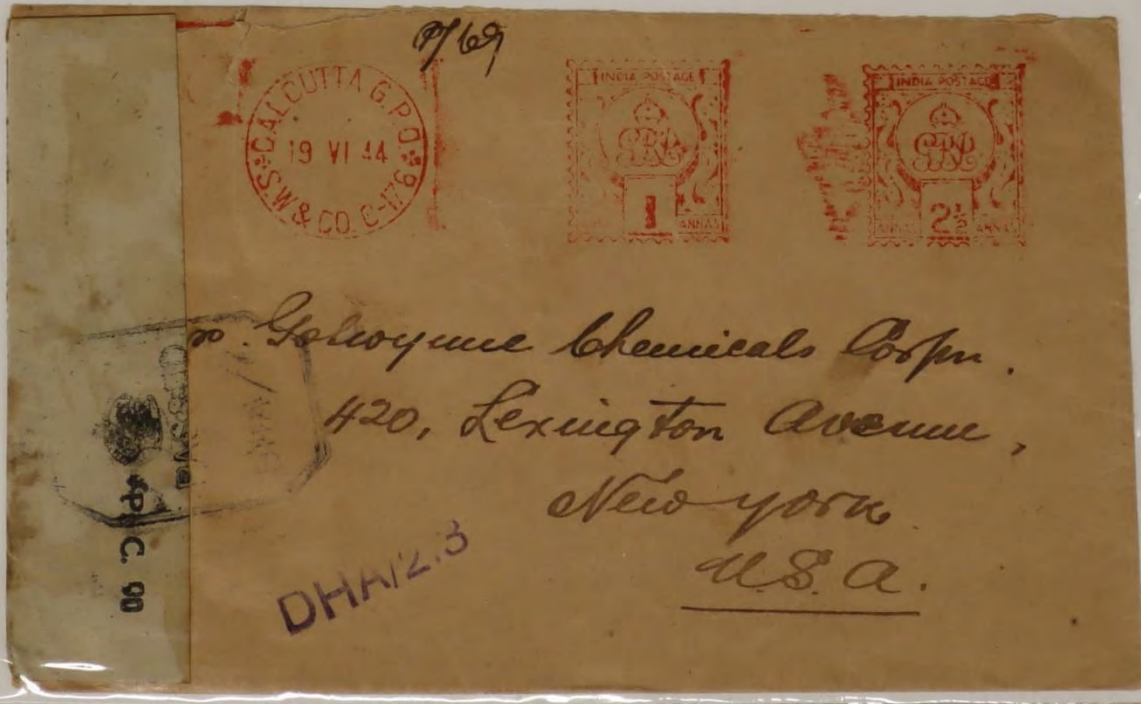 P/69
CALCUTTA G.P.O
19 VI 44
S.W. & CO. C-176
INDIA POSTAGE
1
ANNAS
INDIA POSTAGE
2½
ANNAS ANNAS
Golwynne Chemicals Corpn.
420, Lexington Avenue,
New York
U.S.A.
PASSED
P. C. 90
DHA/2.3